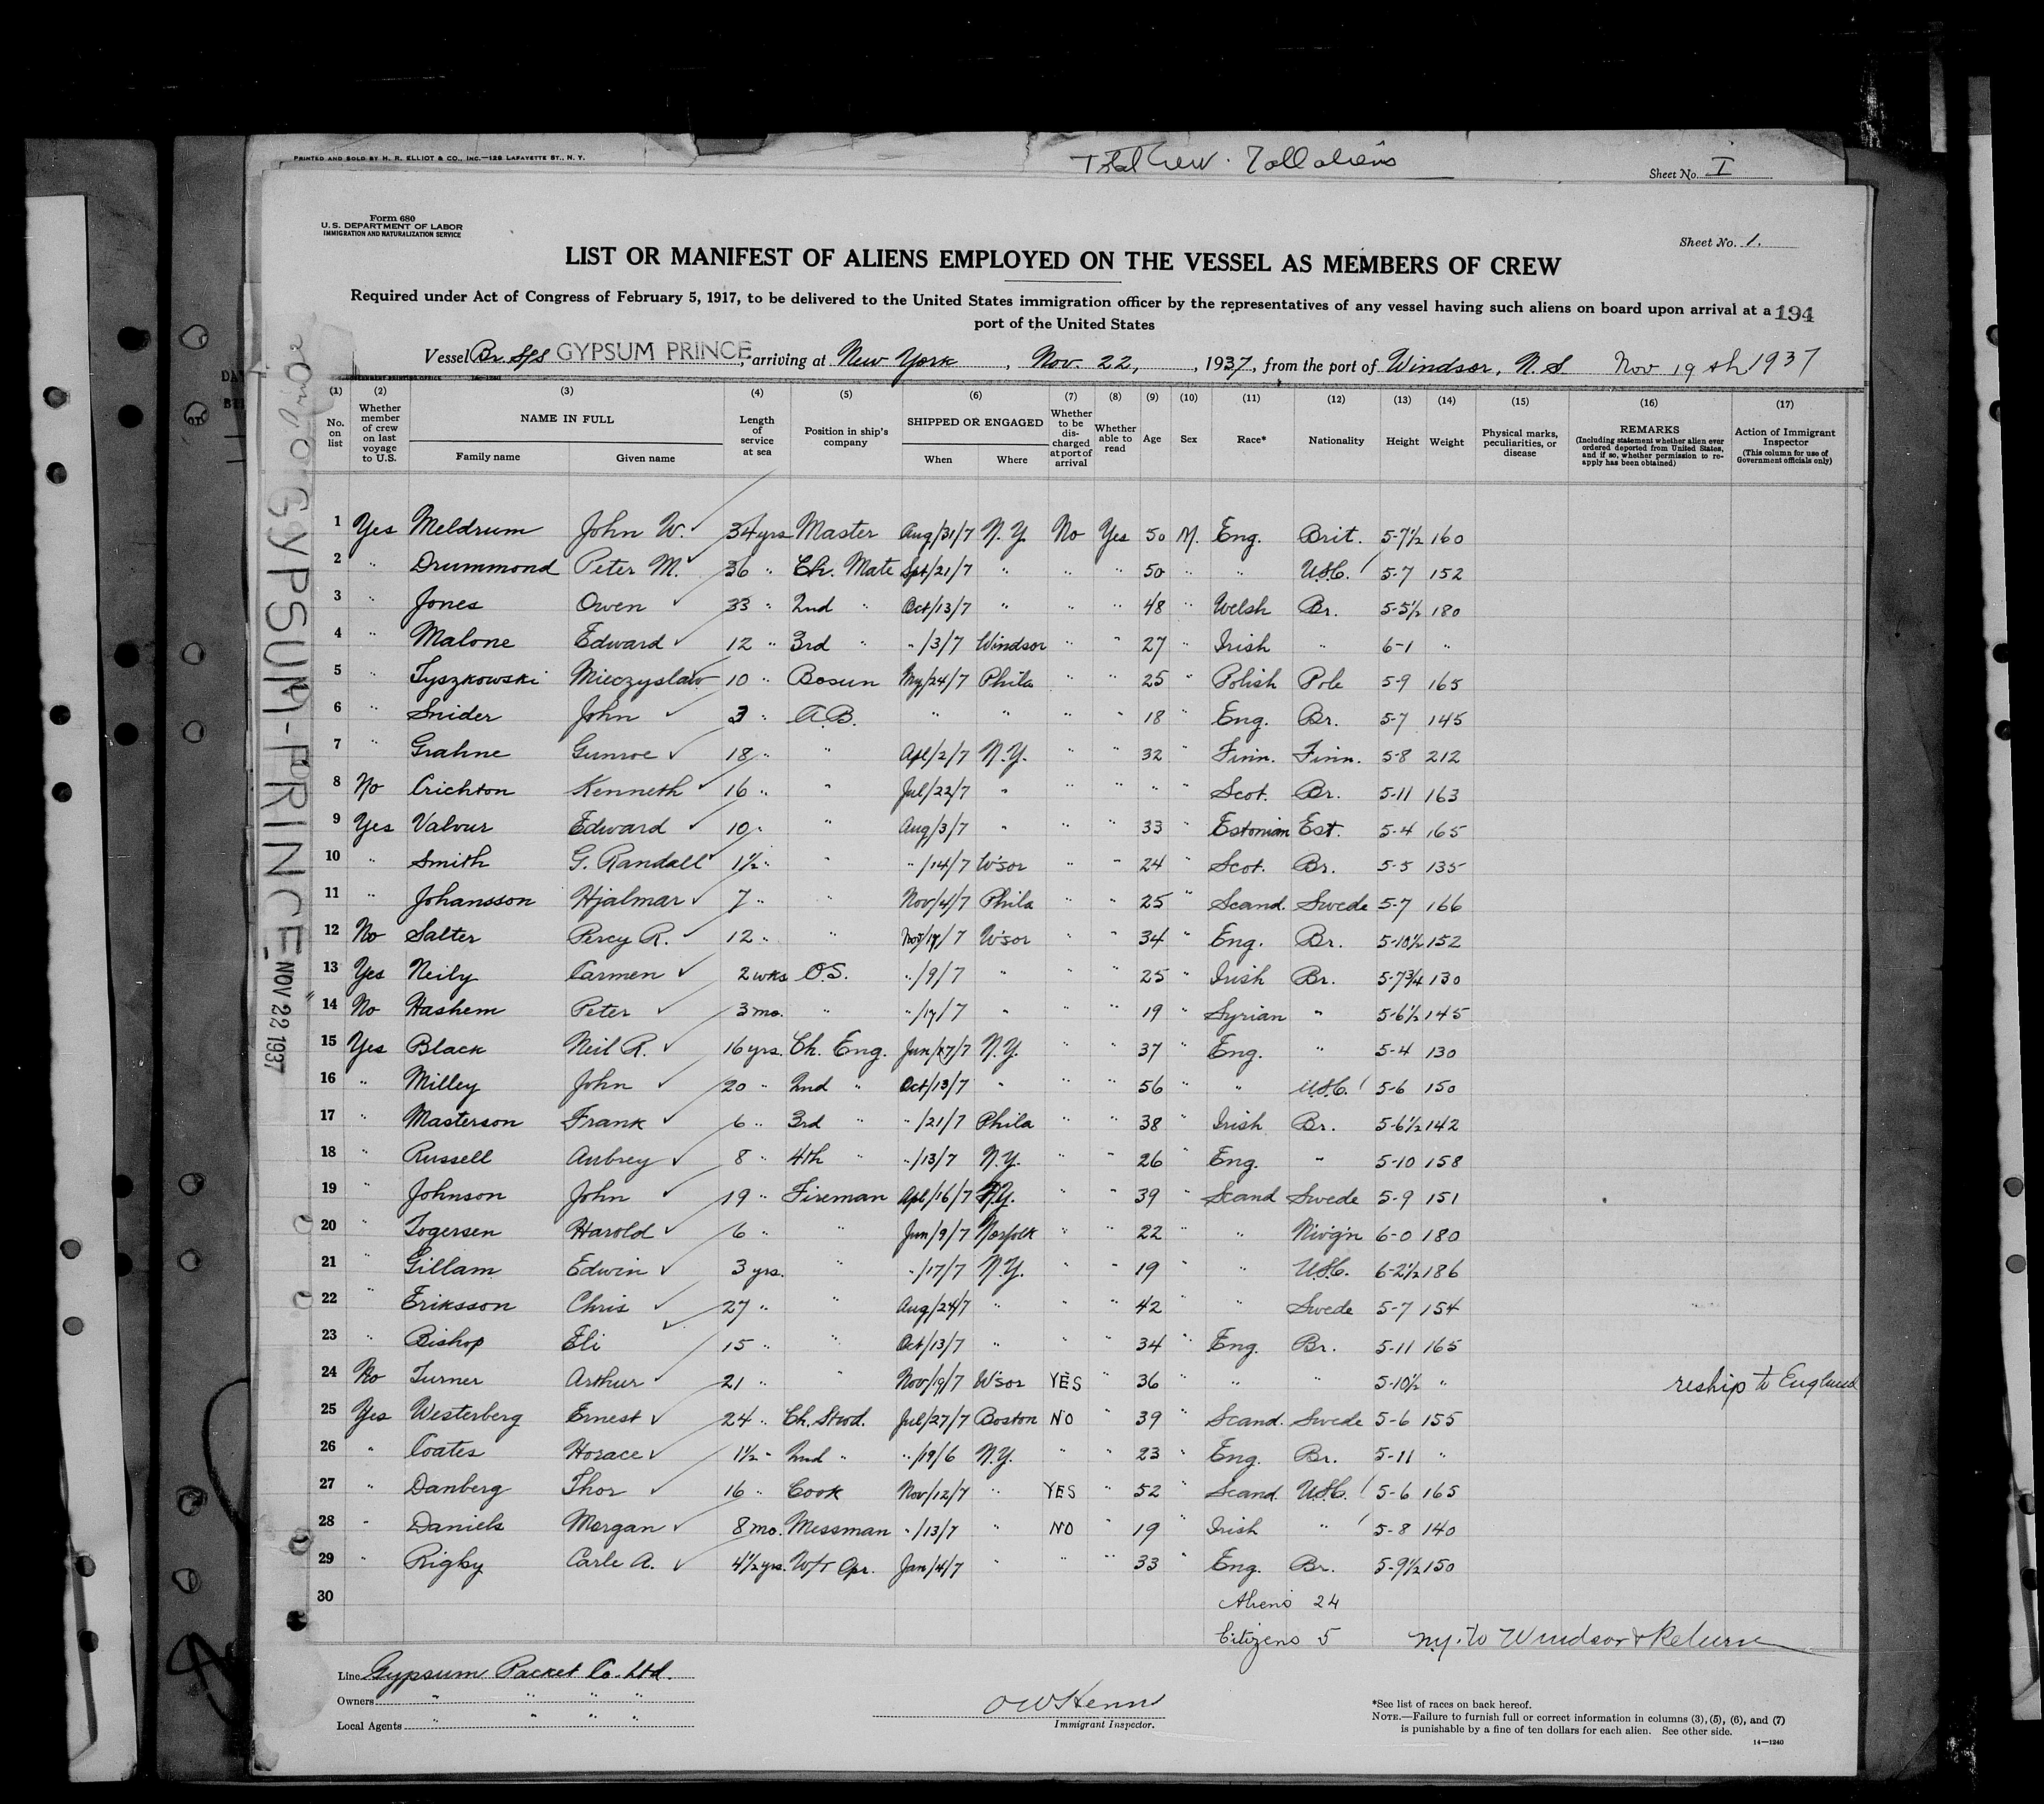 PRINTED AND SOLD BY H. R. ELLIOT & CO., INC.—128 LAFAYETTE ST., N. Y.
Total Crew. 7 all aliens
Sheet No. I
Form 680
U. S. DEPARTMENT OF LABOR
IMMIGRATION AND NATURALIZATION SERVICE
Sheet No. 1.
LIST OR MANIFEST OF ALIENS EMPLOYED ON THE VESSEL AS MEMBERS OF CREW
Required under Act of Congress of February 5, 1917, to be delivered to the United States immigration officer by the representatives of any vessel having such aliens on board upon arrival at a
port of the United States
194
Vessel Br. S/S GYPSUM PRINCE, arriving at New York, Nov. 22, 1937, from the port of Windsor, N. S Nov 19th 1937
(1) (2) (3) (4) (5) (6) (7) (8) (9) (10) (11) (12) (13) (14) (15) (16) (17)
No. on list
Whether member of crew on last voyage to U.S.
NAME IN FULL
Family name Given name
Length of service at sea
Position in ship's company
SHIPPED OR ENGAGED
When Where
Whether to be discharged at port of arrival
Whether able to read
Age
Sex
Race*
Nationality
Height
Weight
Physical marks, peculiarities, or disease
REMARKS
(Including statement whether alien ever ordered deported from United States, and if so, whether permission to reapply has been obtained)
Action of Immigrant Inspector
(This column for use of Government officials only)
1 Yes Meldrum John W. 34 yrs Master Aug/31/7 N. Y. No Yes 50 M. Eng. Brit. 5-7½ 160
2 " Drummond Peter M. 36 " Ch. Mate Spt/21/7 " " " 50 " " U.S.C. 5-7 152
3 " Jones Owen 33 " 2nd " Oct/13/7 " " " 48 " Welsh Br. 5-5½ 180
4 " Malone Edward 12 " 3rd " "/3/7 Windsor " " 27 " Irish " 6-1 "
5 " Tyszkowski Mieczyslaw 10 " Bosun My/24/7 Phila " " 25 " Polish Pole 5-9 165
6 " Snider John 3 " A.B. " " " " 18 " Eng. Br. 5-7 145
7 " Grahne Gunroe 18 " " Apl/2/7 N.Y. " " 32 " Finn. Finn. 5-8 212
8 No Crichton Kenneth 16 " " Jul/22/7 " " " " " Scot. Br. 5-11 163
9 Yes Valvur Edward 10 " " Aug/3/7 " " " 33 " Estonian Est. 5-4 165
10 " Smith G. Randall 1½ " " "/14/7 W'sor " " 24 " Scot. Br. 5-5 135
11 " Johansson Hjalmar 7 " " Nov/4/7 Phila " " 25 " Scand. Swede 5-7 166
12 No Salter Percy R. 12 " " Nov/17/7 W'sor " " 34 " Eng. Br. 5-10½ 152
13 Yes Neily Carmen 2 wks O.S. "/9/7 " " " 25 " Irish Br. 5-7¾ 130
14 No Hashem Peter 3 mo. " "/17/7 " " " 19 " Syrian " 5-6½ 145
15 Yes Black Neil R. 16 yrs. Ch. Eng. Jun/17/7 N.Y. " " 37 " Eng. " 5-4 130
16 " Milley John 20 " 2nd " Oct/13/7 " " " 56 " " U.S.C. 5-6 150
17 " Masterson Frank 6 " 3rd " "/21/7 Phila " " 38 " Irish Br. 5-6½ 142
18 " Russell Aubrey 8 " 4th " "/13/7 N.Y. " " 26 " Eng. " 5-10 158
19 " Johnson John 19 " Fireman Apl/16/7 N.Y. " " 39 " Scand Swede 5-9 151
20 " Togersen Harold 6 " " Jun/9/7 Norfolk " " 22 " " Nw'g'n 6-0 180
21 " Gillam Edwin 3 yrs. " "/17/7 N.Y. " " 19 " " U.S.C. 6-2½ 186
22 " Eriksson Chris 27 " " Aug/24/7 " " " 42 " " Swede 5-7 154
23 " Bishop Eli 15 " " Oct/13/7 " " " 34 " Eng. Br. 5-11 165
24 No Turner Arthur 21 " " Nov/19/7 W'sor YES " 36 " " " 5-10½ " reship to England
25 Yes Westerberg Ernest 24 " Ch. Stwd. Jul/27/7 Boston NO " 39 " Scand. Swede 5-6 155
26 " Coates Horace 1½ " 2nd " "/19/6 N.Y. " " 23 " Eng. Br. 5-11 "
27 " Danberg Thor 16 " Cook Nov/12/7 " YES " 52 " Scand. U.S.C. 5-6 165
28 " Daniels Morgan 8 mo. Messman "/13/7 " NO " 19 " Irish " 5-8 140
29 " Rigby Carle A. 4½ yrs. W/T Opr. Jan/4/7 " " " 33 " Eng. Br. 5-9½ 150
30
Aliens 24
Citizens 5
N.Y. to Windsor & Return
Line Gypsum Packet Co. Ltd.
Owners " " " "
Local Agents " " " "
Immigrant Inspector.
*See list of races on back hereof.
NOTE.—Failure to furnish full or correct information in columns (3), (5), (6), and (7)
is punishable by a fine of ten dollars for each alien. See other side.
14—1240
GYPSUM-PRINCE NOV 22 1937